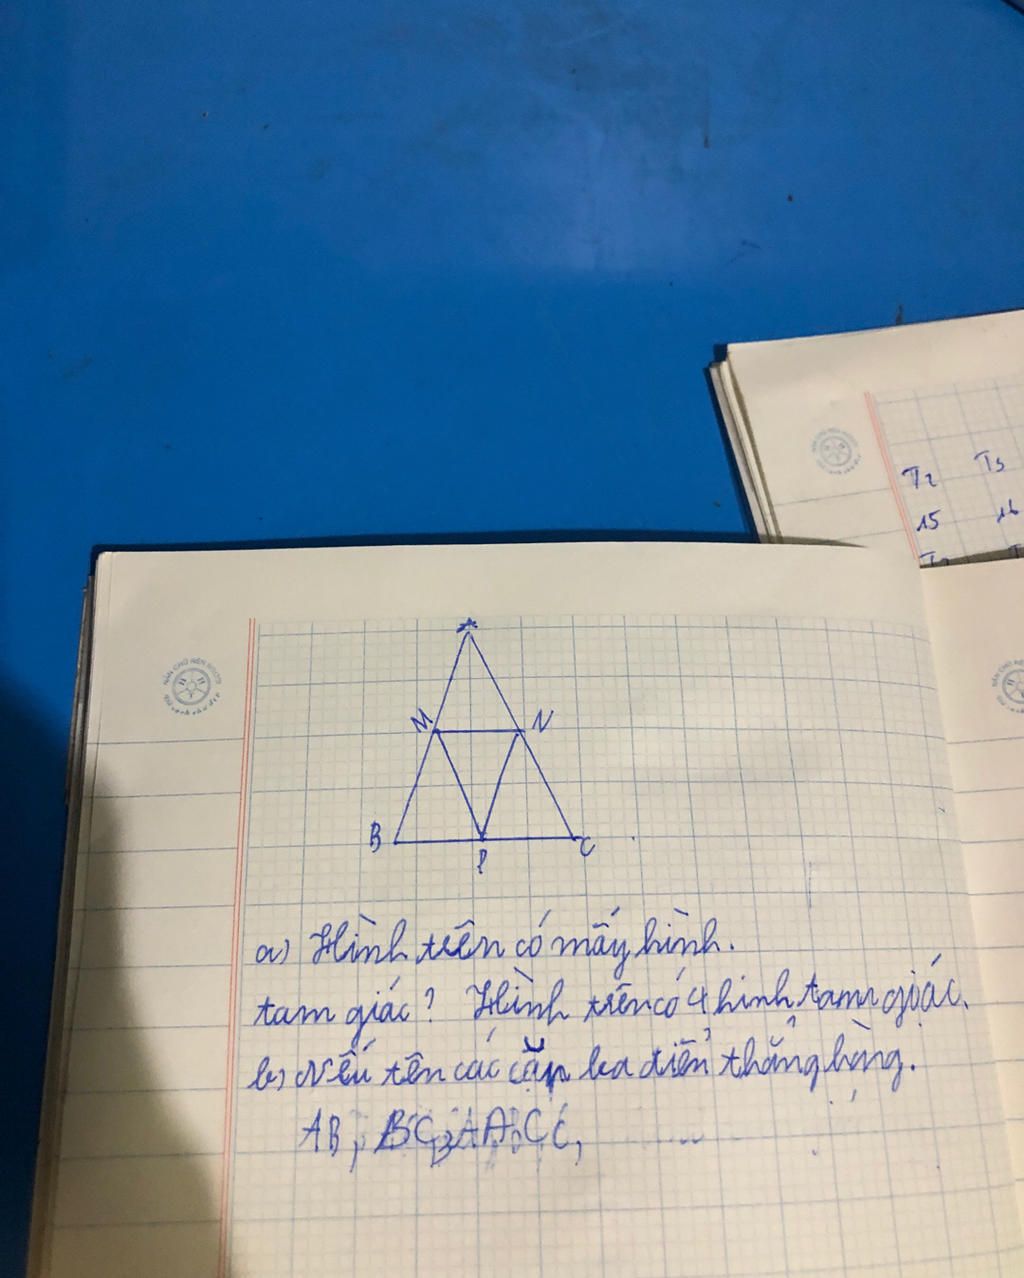 T2 T3
15 16
A
M N
B P C
a) Hình trên có mấy hình.
tam giác? Hình trên có 4 hình tam giác.
b) Nếu tên các cặp ba điển thẳng hàng.
AB, BC,